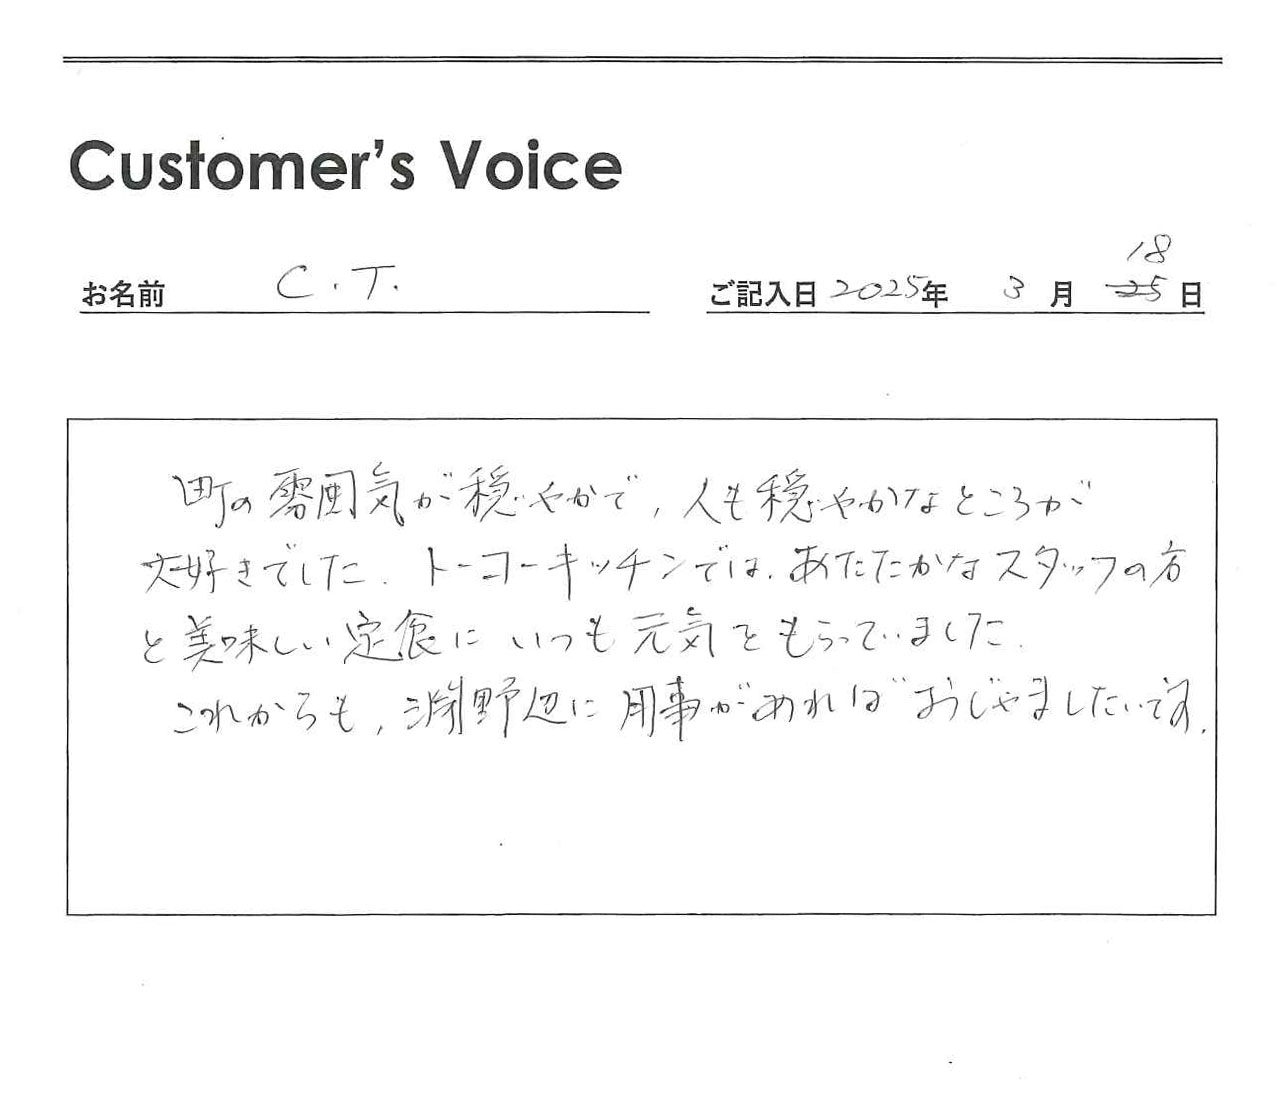 Customer's Voice
お名前 C.T.
ご記入日 2025年 3月 18日
町の雰囲気が穏やかで、人も穏やかなところが
大好きでした。トーコーキッチンでは、あたたかなスタッフの方
と美味しい定食にいつも元気をもらっていました。
これからも、淵野辺に用事があればおじゃましたいです。